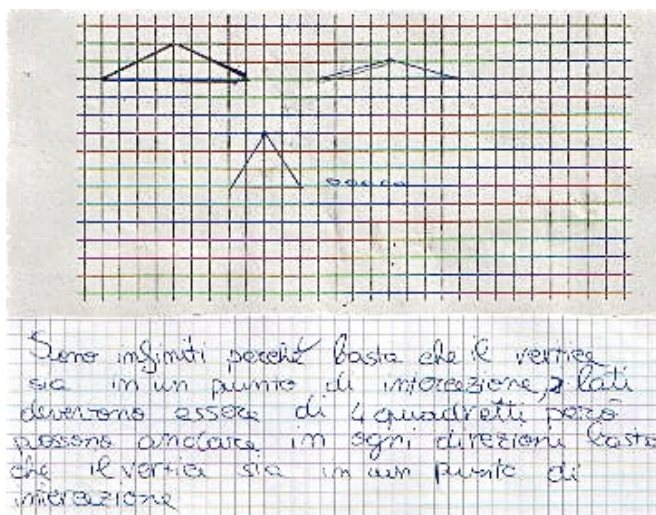 Sono infiniti perché basta che il vertice
sia in un punto di interezione, 2 lati
devevono essere di 4 quadretti però
possono andare in ogni direzioni basta
che il vertice sia in un punto di
interazione